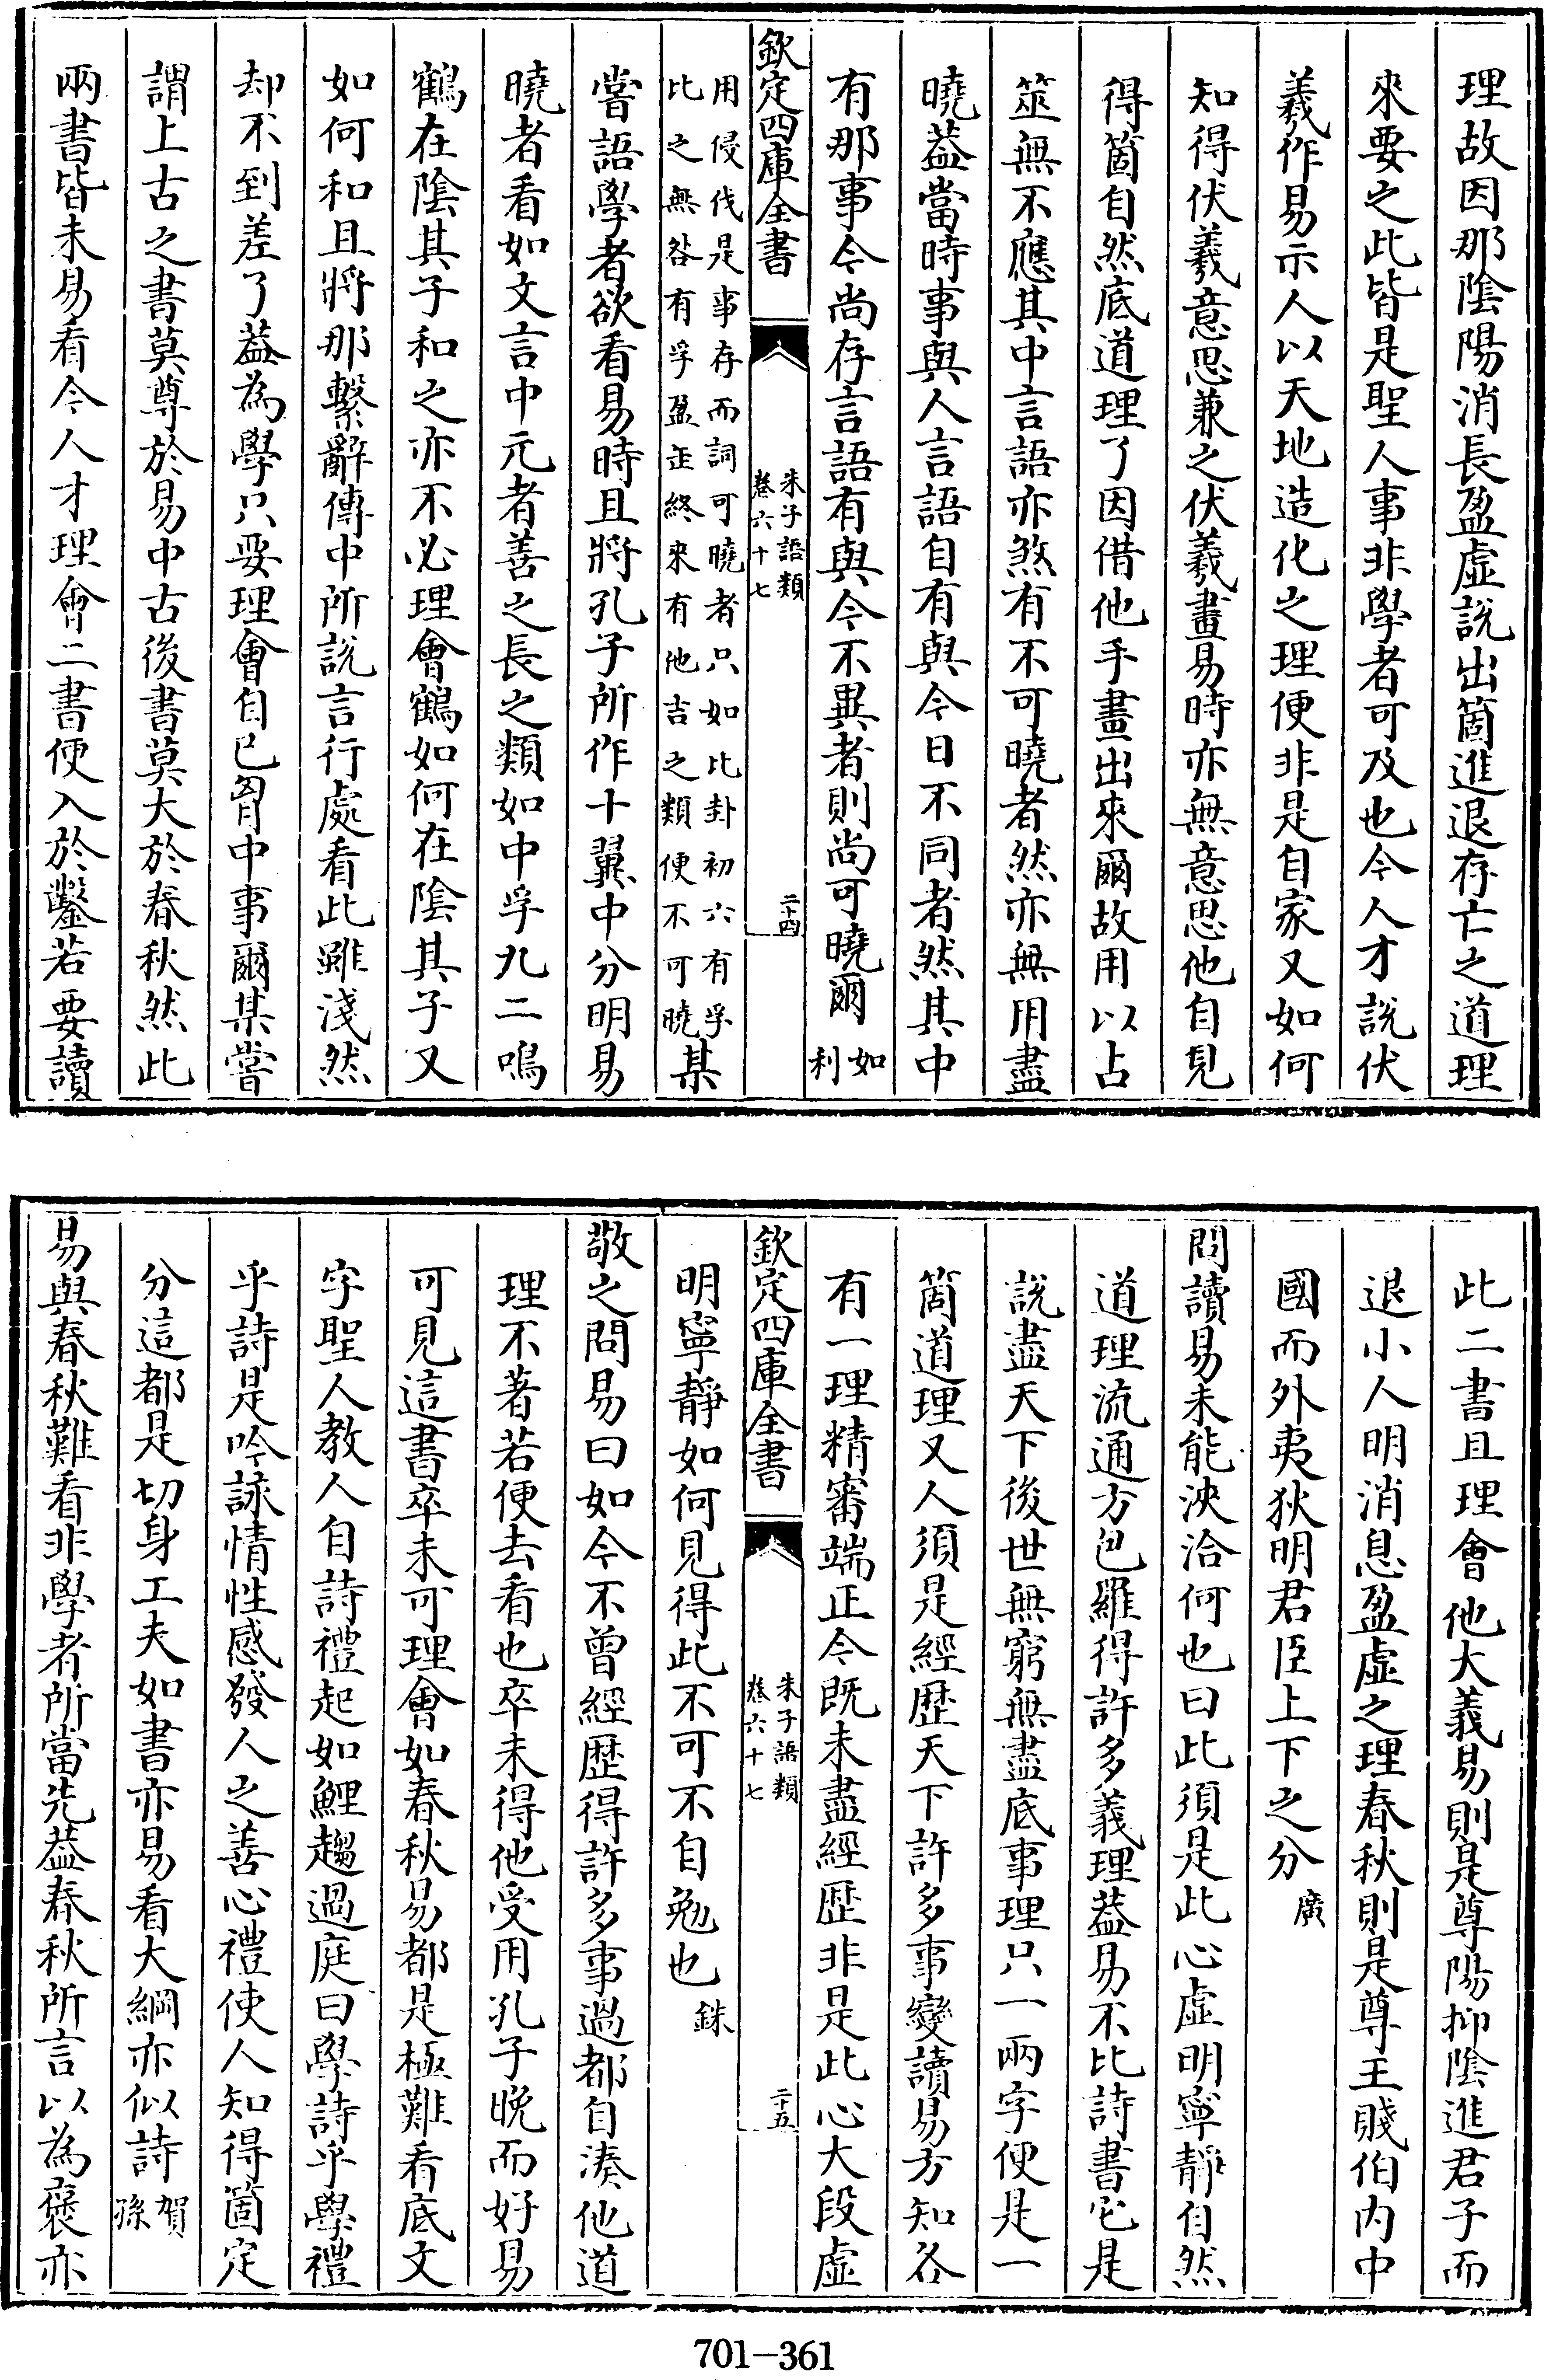 理故因那陰陽消長盈虛說出箇進退存亡之道理
來要之此皆是聖人事非學者可及也今人才說伏
羲作易示人以天地造化之理便非是自家又如何
知得伏羲意思兼之伏羲畫易時亦無意思他自見
得箇自然底道理了因借他手畫出來爾故用以占
筮無不應其中言語亦煞有不可曉者然亦無用盡
曉葢當時事與人言語自有與今日不同者然其中
有那事今尚存言語有與今不異者則尚可曉爾如
利
欽定四庫全書
朱子語類
卷六十七
二十四
用侵伐是事存而詞可曉者只如比卦初六有孚
比之無咎有孚盈缶終來有他吉之類便不可曉某
嘗語學者欲看易時且將孔子所作十翼中分明易
曉者看如文言中元者善之長之類如中孚九二鳴
鶴在陰其子和之亦不必理會鶴如何在陰其子又
如何和且將那繫辭傳中所說言行處看此雖淺然
却不到差了葢為學只要理會自己胷中事爾某嘗
謂上古之書莫尊於易中古後書莫大於春秋然此
兩書皆未易看今人才理會二書便入於鑿若要讀
此二書且理會他大義易則是尊陽抑陰進君子而
退小人明消息盈虛之理春秋則是尊王賤伯内中
國而外夷狄明君臣上下之分廣
問讀易未能浹洽何也曰此須是此心虛明寧靜自然
道理流通方包羅得許多義理葢易不比詩書它是
說盡天下後世無窮無盡底事理只一兩字便是一
箇道理又人須是經歷天下許多事變讀易方知各
有一理精審端正今既未盡經歷非是此心大段虛
欽定四庫全書
朱子語類
卷六十七
二十五
明寧靜如何見得此不可不自勉也銖
敬之問易曰如今不曾經歷得許多事過都自湊他道
理不著若便去看也卒未得他受用孔子晚而好易
可見這書卒未可理會如春秋易都是極難看底文
字聖人教人自詩禮起如鯉趨過庭曰學詩乎學禮
乎詩是吟詠情性感發人之善心禮使人知得箇定
分這都是切身工夫如書亦易看大綱亦似詩賀
孫
易與春秋難看非學者所當先葢春秋所言以為褒亦
701-361